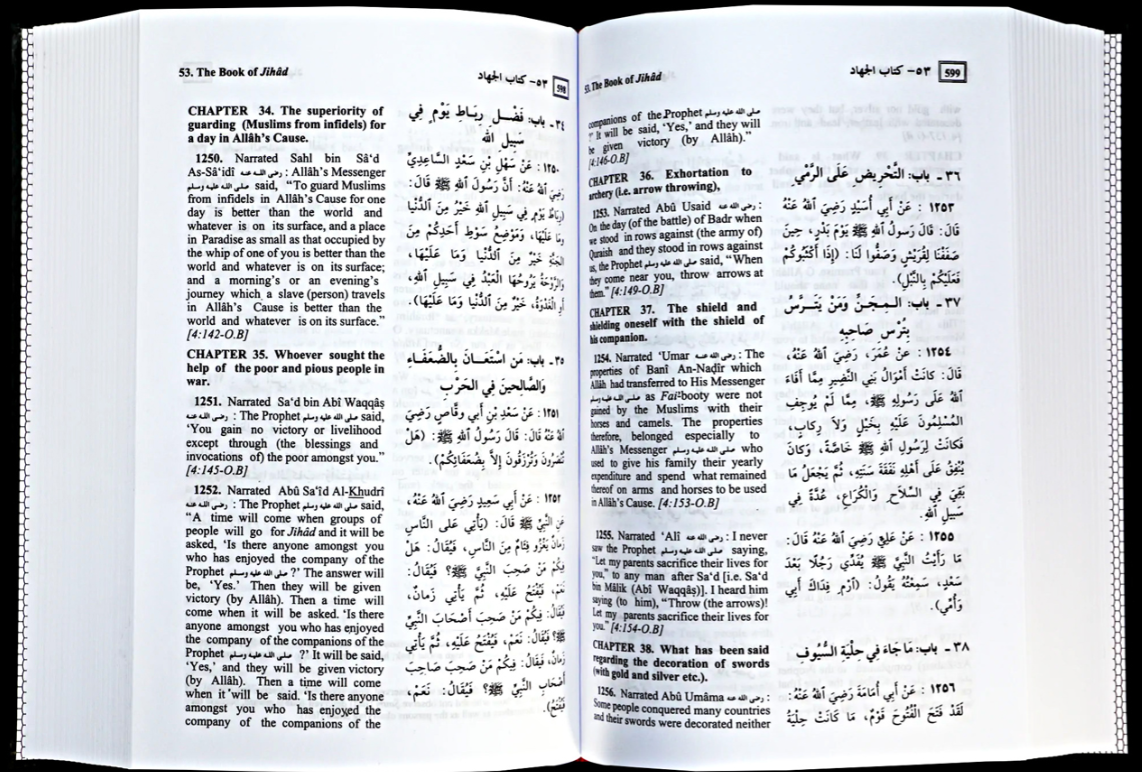 53. The Book of Jihâd
٥٣- كتاب الجهاد
598
CHAPTER 34. The superiority of
guarding (Muslims from infidels) for
a day in Allâh's Cause.
1250. Narrated Sahl bin Sâ'd
As-Sâ'idî رضى الله عنه : Allâh's Messenger
صلى الله عليه وسلم said, "To guard Muslims
from infidels in Allâh's Cause for one
day is better than the world and
whatever is on its surface, and a place
in Paradise as small as that occupied by
the whip of one of you is better than the
world and whatever is on its surface;
and a morning's or an evening's
journey which a slave (person) travels
in Allâh's Cause is better than the
world and whatever is on its surface."
[4:142-O.B]
CHAPTER 35. Whoever sought the
help of the poor and pious people in
war.
1251. Narrated Sa'd bin Abî Waqqâṣ
رضى الله عنه : The Prophet صلى الله عليه وسلم said,
'You gain no victory or livelihood
except through (the blessings and
invocations of) the poor amongst you."
[4:145-O.B]
1252. Narrated Abû Sa'îd Al-Khudrî
رضى الله عنه : The Prophet صلى الله عليه وسلم said,
"A time will come when groups of
people will go for Jihâd and it will be
asked, 'Is there anyone amongst you
who has enjoyed the company of the
Prophet صلى الله عليه وسلم ?' The answer will
be, 'Yes.' Then they will be given
victory (by Allâh). Then a time will
come when it will be asked. 'Is there
anyone amongst you who has enjoyed
the company of the companions of the
Prophet صلى الله عليه وسلم ?' It will be said,
'Yes,' and they will be given victory
(by Allâh). Then a time will come
when it will be said. 'Is there anyone
amongst you who has enjoyed the
company of the companions of the
٣٤- باب: فَضْل رِبَاطِ يَوْمٍ فِي
سَبِيلِ الله
١٢٥٠ : عَنْ سَهْلِ بْنِ سَعْدٍ السَّاعِدِيِّ
رَضِيَ اللهُ عَنْهُ: أَنَّ رَسُولَ اللهِ ﷺ قَالَ:
(رِبَاطُ يَوْمٍ فِي سَبِيلِ اللهِ خَيْرٌ مِنَ الدُّنْيَا
وَمَا عَلَيْهَا، وَمَوْضِعُ سَوْطِ أَحَدِكُمْ مِنَ
الجَنَّةِ خَيْرٌ مِنَ الدُّنْيَا وَمَا عَلَيْهَا،
وَالرَّوْحَةُ يَرُوحُهَا الْعَبْدُ فِي سَبِيلِ اللهِ،
أَوِ الْغَدْوَةُ، خَيْرٌ مِنَ الدُّنْيَا وَمَا عَلَيْهَا).
٣٥- باب: مَن اسْتَعَانَ بِالضُّعَفَاءِ
وَالصَّالِحِينَ فِي الحَرْبِ
١٢٥١ : عَنْ سَعْدِ بْنِ أَبِي وَقَّاصٍ رَضِيَ
اللهُ عَنْهُ قَالَ: قَالَ رَسُولُ اللهِ ﷺ: (هَلْ
تُنْصَرُونَ وَتُرْزَقُونَ إِلَّا بِضُعَفَائِكُمْ).
١٢٥٢ : عَنْ أَبِي سَعِيدٍ رَضِيَ اللهُ عَنْهُ،
عَنِ النَّبِيِّ ﷺ قَالَ: (يَأْتِي عَلَى النَّاسِ
زَمَانٌ يَغْزُو فِئَامٌ مِنَ النَّاسِ، فَيُقَالُ: هَلْ
فِيكُمْ مَنْ صَحِبَ النَّبِيَّ ﷺ؟ فَيُقَالُ:
نَعَمْ، فَيُفْتَحُ عَلَيْهِ، ثُمَّ يَأْتِي زَمَانٌ،
فَيُقَالُ: فِيكُمْ مَنْ صَحِبَ أَصْحَابَ النَّبِيِّ
ﷺ؟ فَيُقَالُ: نَعَمْ، فَيُفْتَحُ عَلَيْهِ، ثُمَّ يَأْتِي
زَمَانٌ، فَيُقَالُ: فِيكُمْ مَنْ صَحِبَ صَاحِبَ
أَصْحَابِ النَّبِيِّ ﷺ؟ فَيُقَالُ: نَعَمْ،
فَيُفْتَحُ).
53. The Book of Jihâd
٥٣- كتاب الجهاد
599
companions of the Prophet صلى الله عليه وسلم
?' It will be said, 'Yes,' and they will
be given victory (by Allâh)."
[4:146-O.B]
CHAPTER 36. Exhortation to
archery (i.e. arrow throwing),
1253. Narrated Abû Usaid رضى الله عنه :
On the day (of the battle) of Badr when
we stood in rows against (the army of)
Quraish and they stood in rows against
us, the Prophet صلى الله عليه وسلم said, "When
they come near you, throw arrows at
them." [4:149-O.B]
CHAPTER 37. The shield and
shielding oneself with the shield of
his companion.
1254. Narrated 'Umar رضى الله عنه : The
properties of Banî An-Naḍîr which
Allâh had transferred to His Messenger
صلى الله عليه وسلم as Fai-booty were not
gained by the Muslims with their
horses and camels. The properties
therefore, belonged especially to
Allâh's Messenger صلى الله عليه وسلم who
used to give his family their yearly
expenditure and spend what remained
thereof on arms and horses to be used
in Allâh's Cause. [4:153-O.B]
1255. Narrated 'Alî رضى الله عنه : I never
saw the Prophet صلى الله عليه وسلم saying,
"Let my parents sacrifice their lives for
you," to any man after Sa'd [i.e. Sa'd
bin Mâlik (Abî Waqqâṣ)]. I heard him
saying (to him), "Throw (the arrows)!
Let my parents sacrifice their lives for
you." [4:154-O.B]
CHAPTER 38. What has been said
regarding the decoration of swords
(with gold and silver etc.).
1256. Narrated Abû Umâma رضى الله عنه :
Some people conquered many countries
and their swords were decorated neither
٣٦- باب: التَّحْرِيضِ عَلَى الرَّمْيِ
١٢٥٣ : عَنْ أَبِي أُسَيْدٍ رَضِيَ اللهُ عَنْهُ
قَالَ: قَالَ رَسُولُ اللهِ ﷺ يَوْمَ بَدْرٍ، حِينَ
صَفَفْنَا لِقُرَيْشٍ وَصَفُّوا لَنَا: (إِذَا أَكْثَبُوكُمْ
فَعَلَيْكُمْ بِالنَّبْلِ).
٣٧- باب: المِجَنِّ وَمَنْ يَتَرَّسُ
بِتُرْسِ صَاحِبِهِ
١٢٥٤ : عَنْ عُمَرَ، رَضِيَ اللهُ عَنْهُ،
قَالَ: كَانَتْ أَمْوَالُ بَنِي النَّضِيرِ مِمَّا أَفَاءَ
اللهُ عَلَى رَسُولِهِ ﷺ، مِمَّا لَمْ يُوجِفِ
المُسْلِمُونَ عَلَيْهِ بِخَيْلٍ وَلَا رِكَابٍ،
فَكَانَتْ لِرَسُولِ اللهِ ﷺ خَاصَّةً، وَكَانَ
يُنْفِقُ عَلَى أَهْلِهِ نَفَقَةَ سَنَتِهِ، ثُمَّ يَجْعَلُ مَا
بَقِيَ فِي السِّلَاحِ وَالْكُرَاعِ، عُدَّةً فِي
سَبِيلِ اللهِ.
١٢٥٥ : عَنْ عَلِيٍّ رَضِيَ اللهُ عَنْهُ قَالَ:
مَا رَأَيْتُ النَّبِيَّ ﷺ يُفَدِّي رَجُلًا بَعْدَ
سَعْدٍ، سَمِعْتُهُ يَقُولُ: (ارْمِ فِدَاكَ أَبِي
وَأُمِّي).
٣٨- باب: مَا جَاءَ فِي حِلْيَةِ السُّيُوفِ
١٢٥٦ : عَنْ أَبِي أُمَامَةَ رَضِيَ اللهُ عَنْهُ:
لَقَدْ فَتَحَ الْفُتُوحَ قَوْمٌ، مَا كَانَتْ حِلْيَةُ